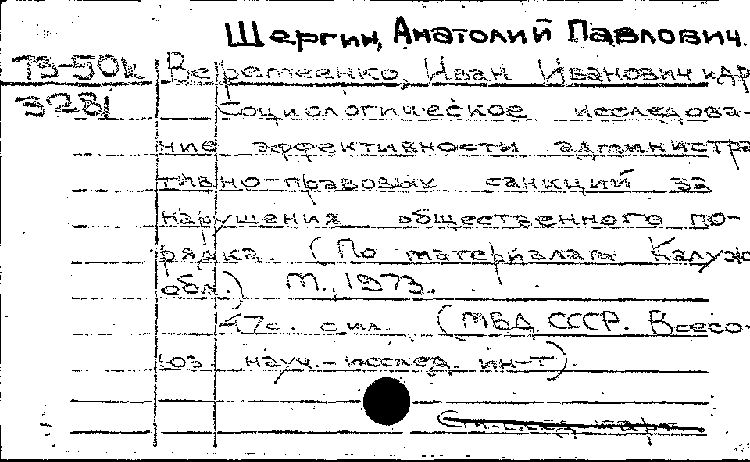 Шергин, Анатолий Павлович.
73-50к Веремеенко, Иван Иванович и др
3281 Социологическое исследова-
ние эффективности администра
тивно-правовых санкций за
нарушения общественного по-
рядка. (По материалам Калужс
обл.) М., 1973.
47с. с ил. (МВД СССР. Всесо-
юз науч.-исслед. ин-т).
См. след карт